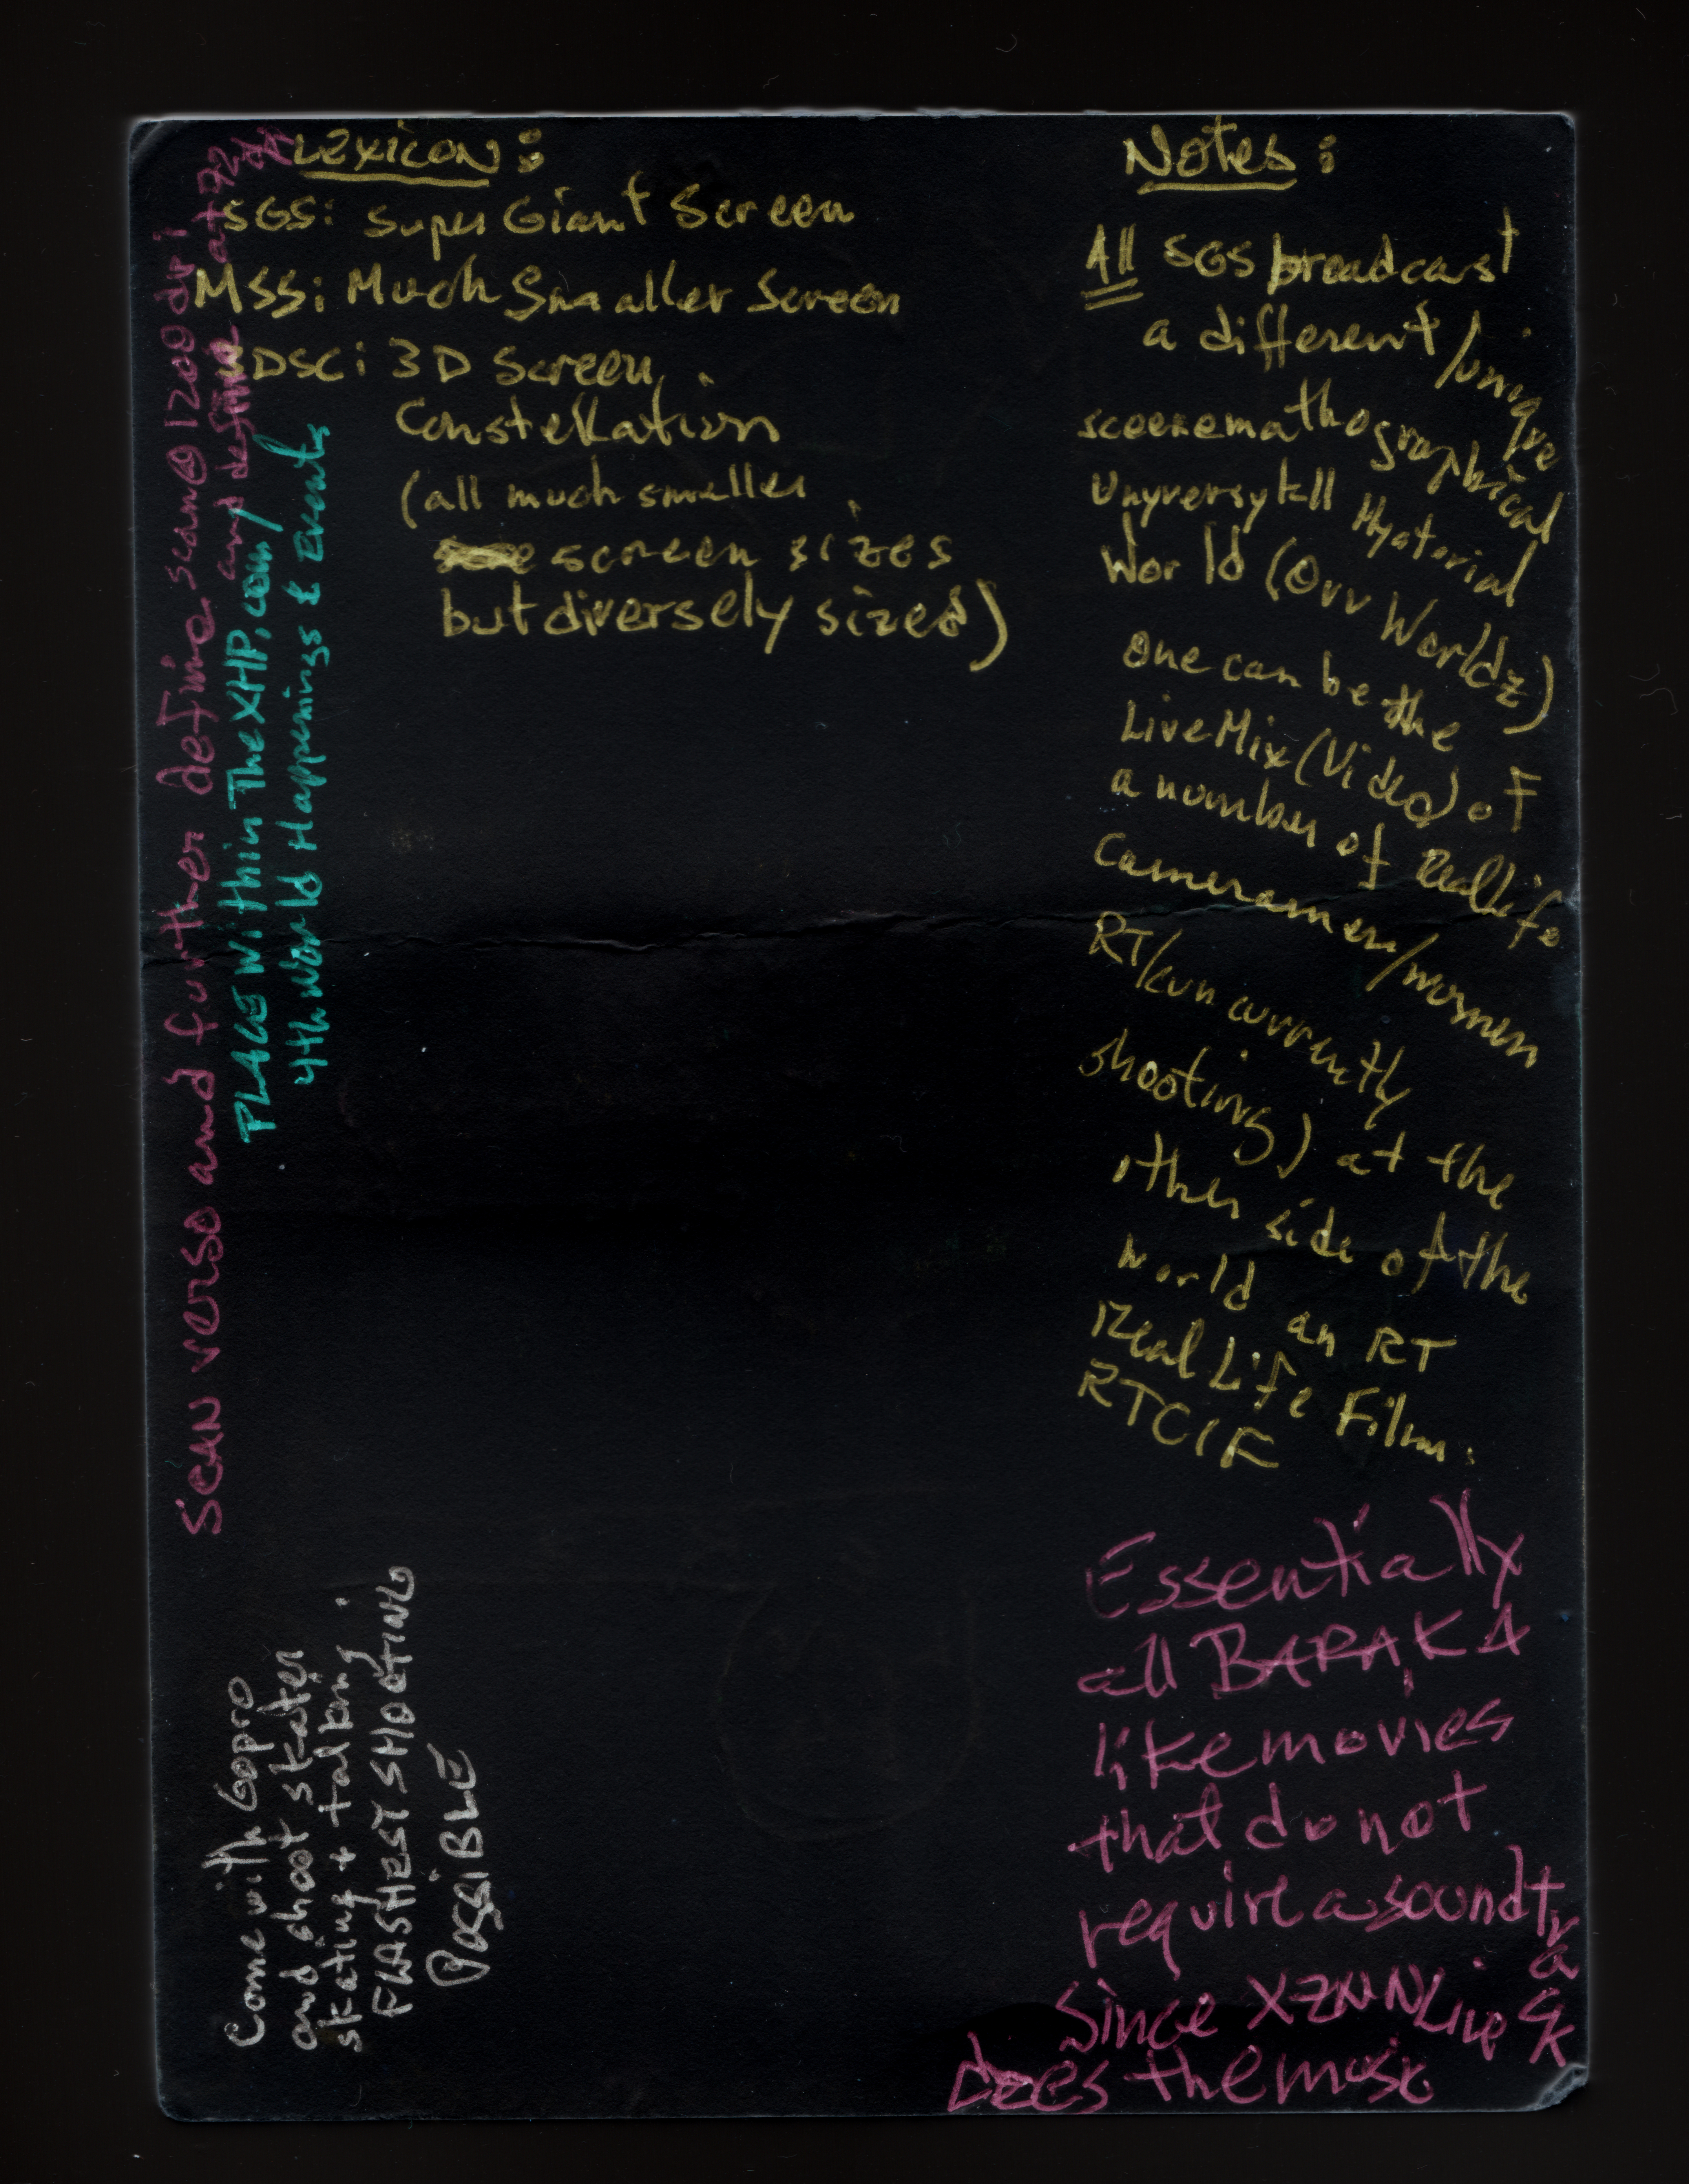 Lexicon:
SGS: Super Giant Screen
MSS: Much Smaller Screen
3DSC: 3D Screen
Constellation
(all much smaller
screen sizes
but diversely sized)
Notes:
All SGS broadcast
a different/unique
sceenemathographical
Unyversytall Hystorial
World (Ovv Worldz)
one can be the
Live Mix (Video) of
a number of Real Life
cameramen/women
RT/kun currently
shooting) at the
other side of the
world an RT
Real Life Film.
RTCIF
Essentially
all BARAKA
like movies
that do not
require a soundtrack
Since XZNN Live
does the music
Scan verso and further define scan@1200 dpi
and define at 72
PLACE within TheXHP.com/
4th World Happenings & Events
Come with Gopro
and shoot skater
skating + talking
FLASHEST SHOOTING
POSSIBLE